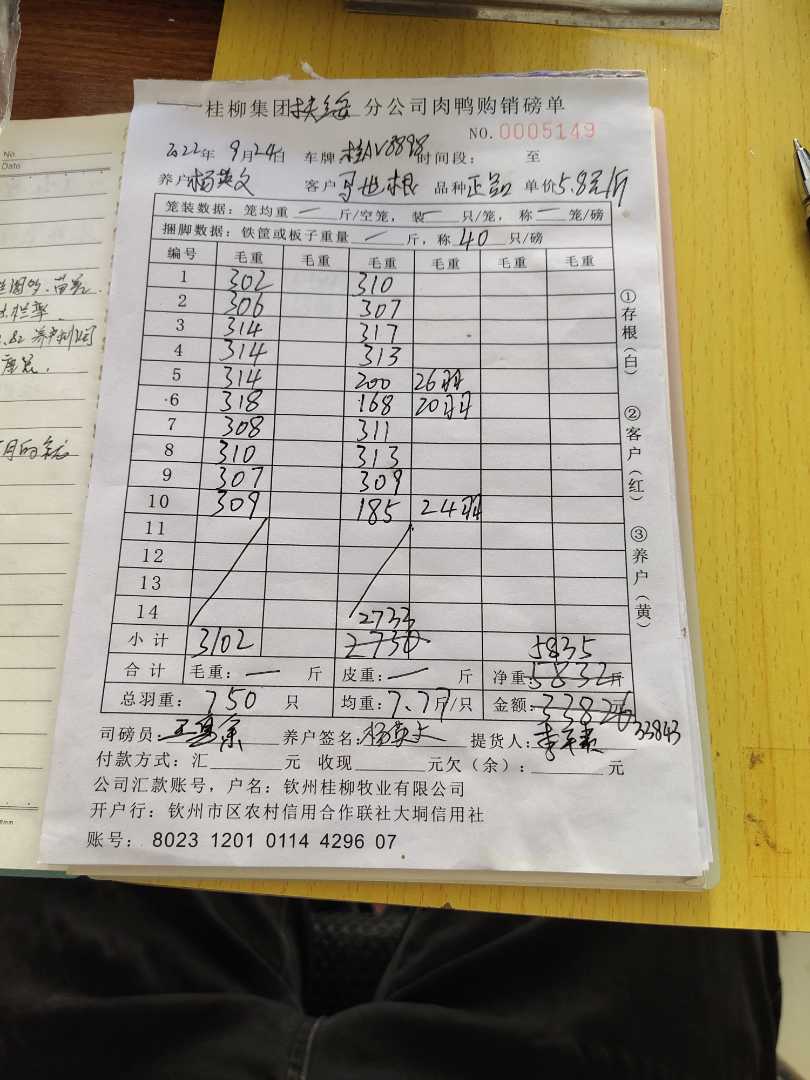 桂柳集团扶绥分公司肉鸭购销磅单
NO.0005149
2022年 9月24日 车牌 桂AV8898 时间段： 至
养户 杨英文 客户 马世根 品种 正品 单价 5.8元/斤
笼装数据：笼均重 — 斤/空笼，装 — 只/笼，称 — 笼/磅
捆脚数据：铁筐或板子重量 — 斤，称 40 只/磅
编号 毛重 毛重 毛重 毛重 毛重 毛重
1 302 310
2 306 307
3 314 317
4 314 313
5 314 200 26羽
6 318 168 20羽
7 308 311
8 310 313
9 307 309
10 309 185 24羽
11
12
13
14 2733
小计 3102 2730 5835
合计 毛重：— 斤 皮重：— 斤 净重：5832斤
总羽重：750 只 均重：7.77斤/只 金额：33826元 33843
司磅员： 养户签名：杨英文 提货人：
付款方式：汇 元 收现 元欠（余）： 元
公司汇款账号，户名：钦州桂柳牧业有限公司
开户行：钦州市区农村信用合作联社大垌信用社
账号：8023 1201 0114 4296 07
①存根（白） ②客户（红） ③养户（黄）
No.
Date